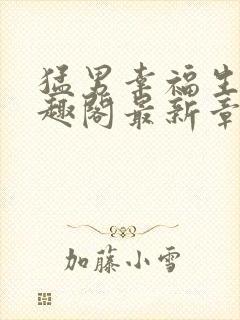 猛男幸福生
趣阁最新章
加藤小雪